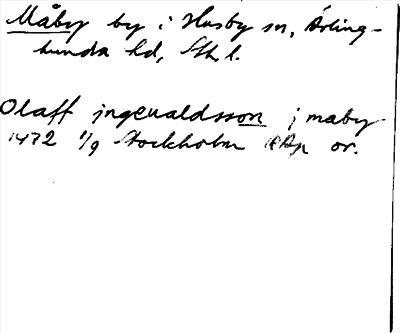 Måby by i Husby sn, Ärling-
hunda hd, Sth l.
Olaff jngeualdsson j maby
1472 1/9 Stockholm RAp or.